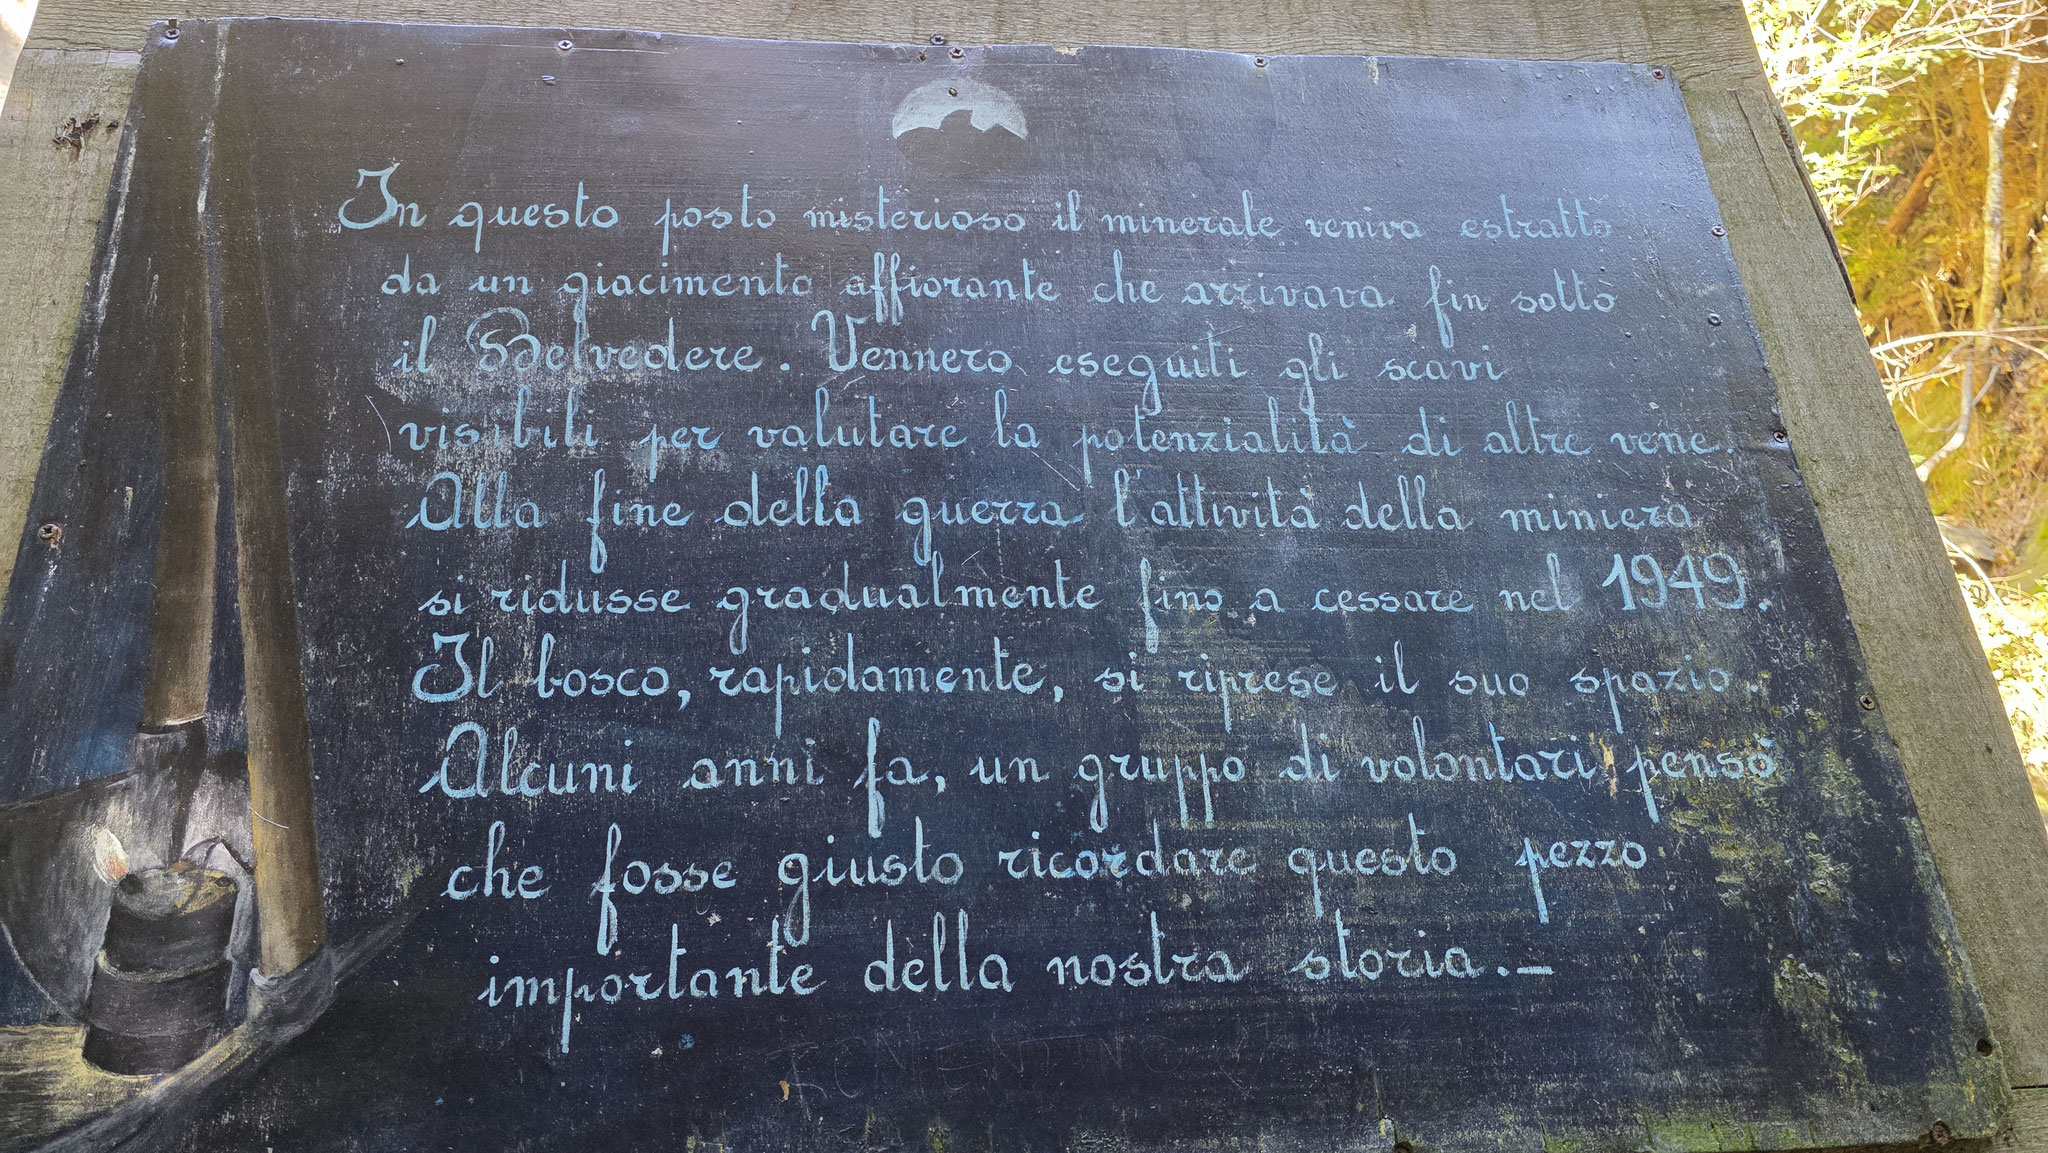 In questo posto misterioso il minerale veniva estratto
da un giacimento affiorante che arrivava fin sotto
il Belvedere. Vennero eseguiti gli scavi
visibili per valutare la potenzialità di altre vene.
Alla fine della guerra l'attività della miniera
si ridusse gradualmente fino a cessare nel 1949.
Il bosco, rapidamente, si riprese il suo spazio.
Alcuni anni fa, un gruppo di volontari pensò
che fosse giusto ricordare questo pezzo
importante della nostra storia.-